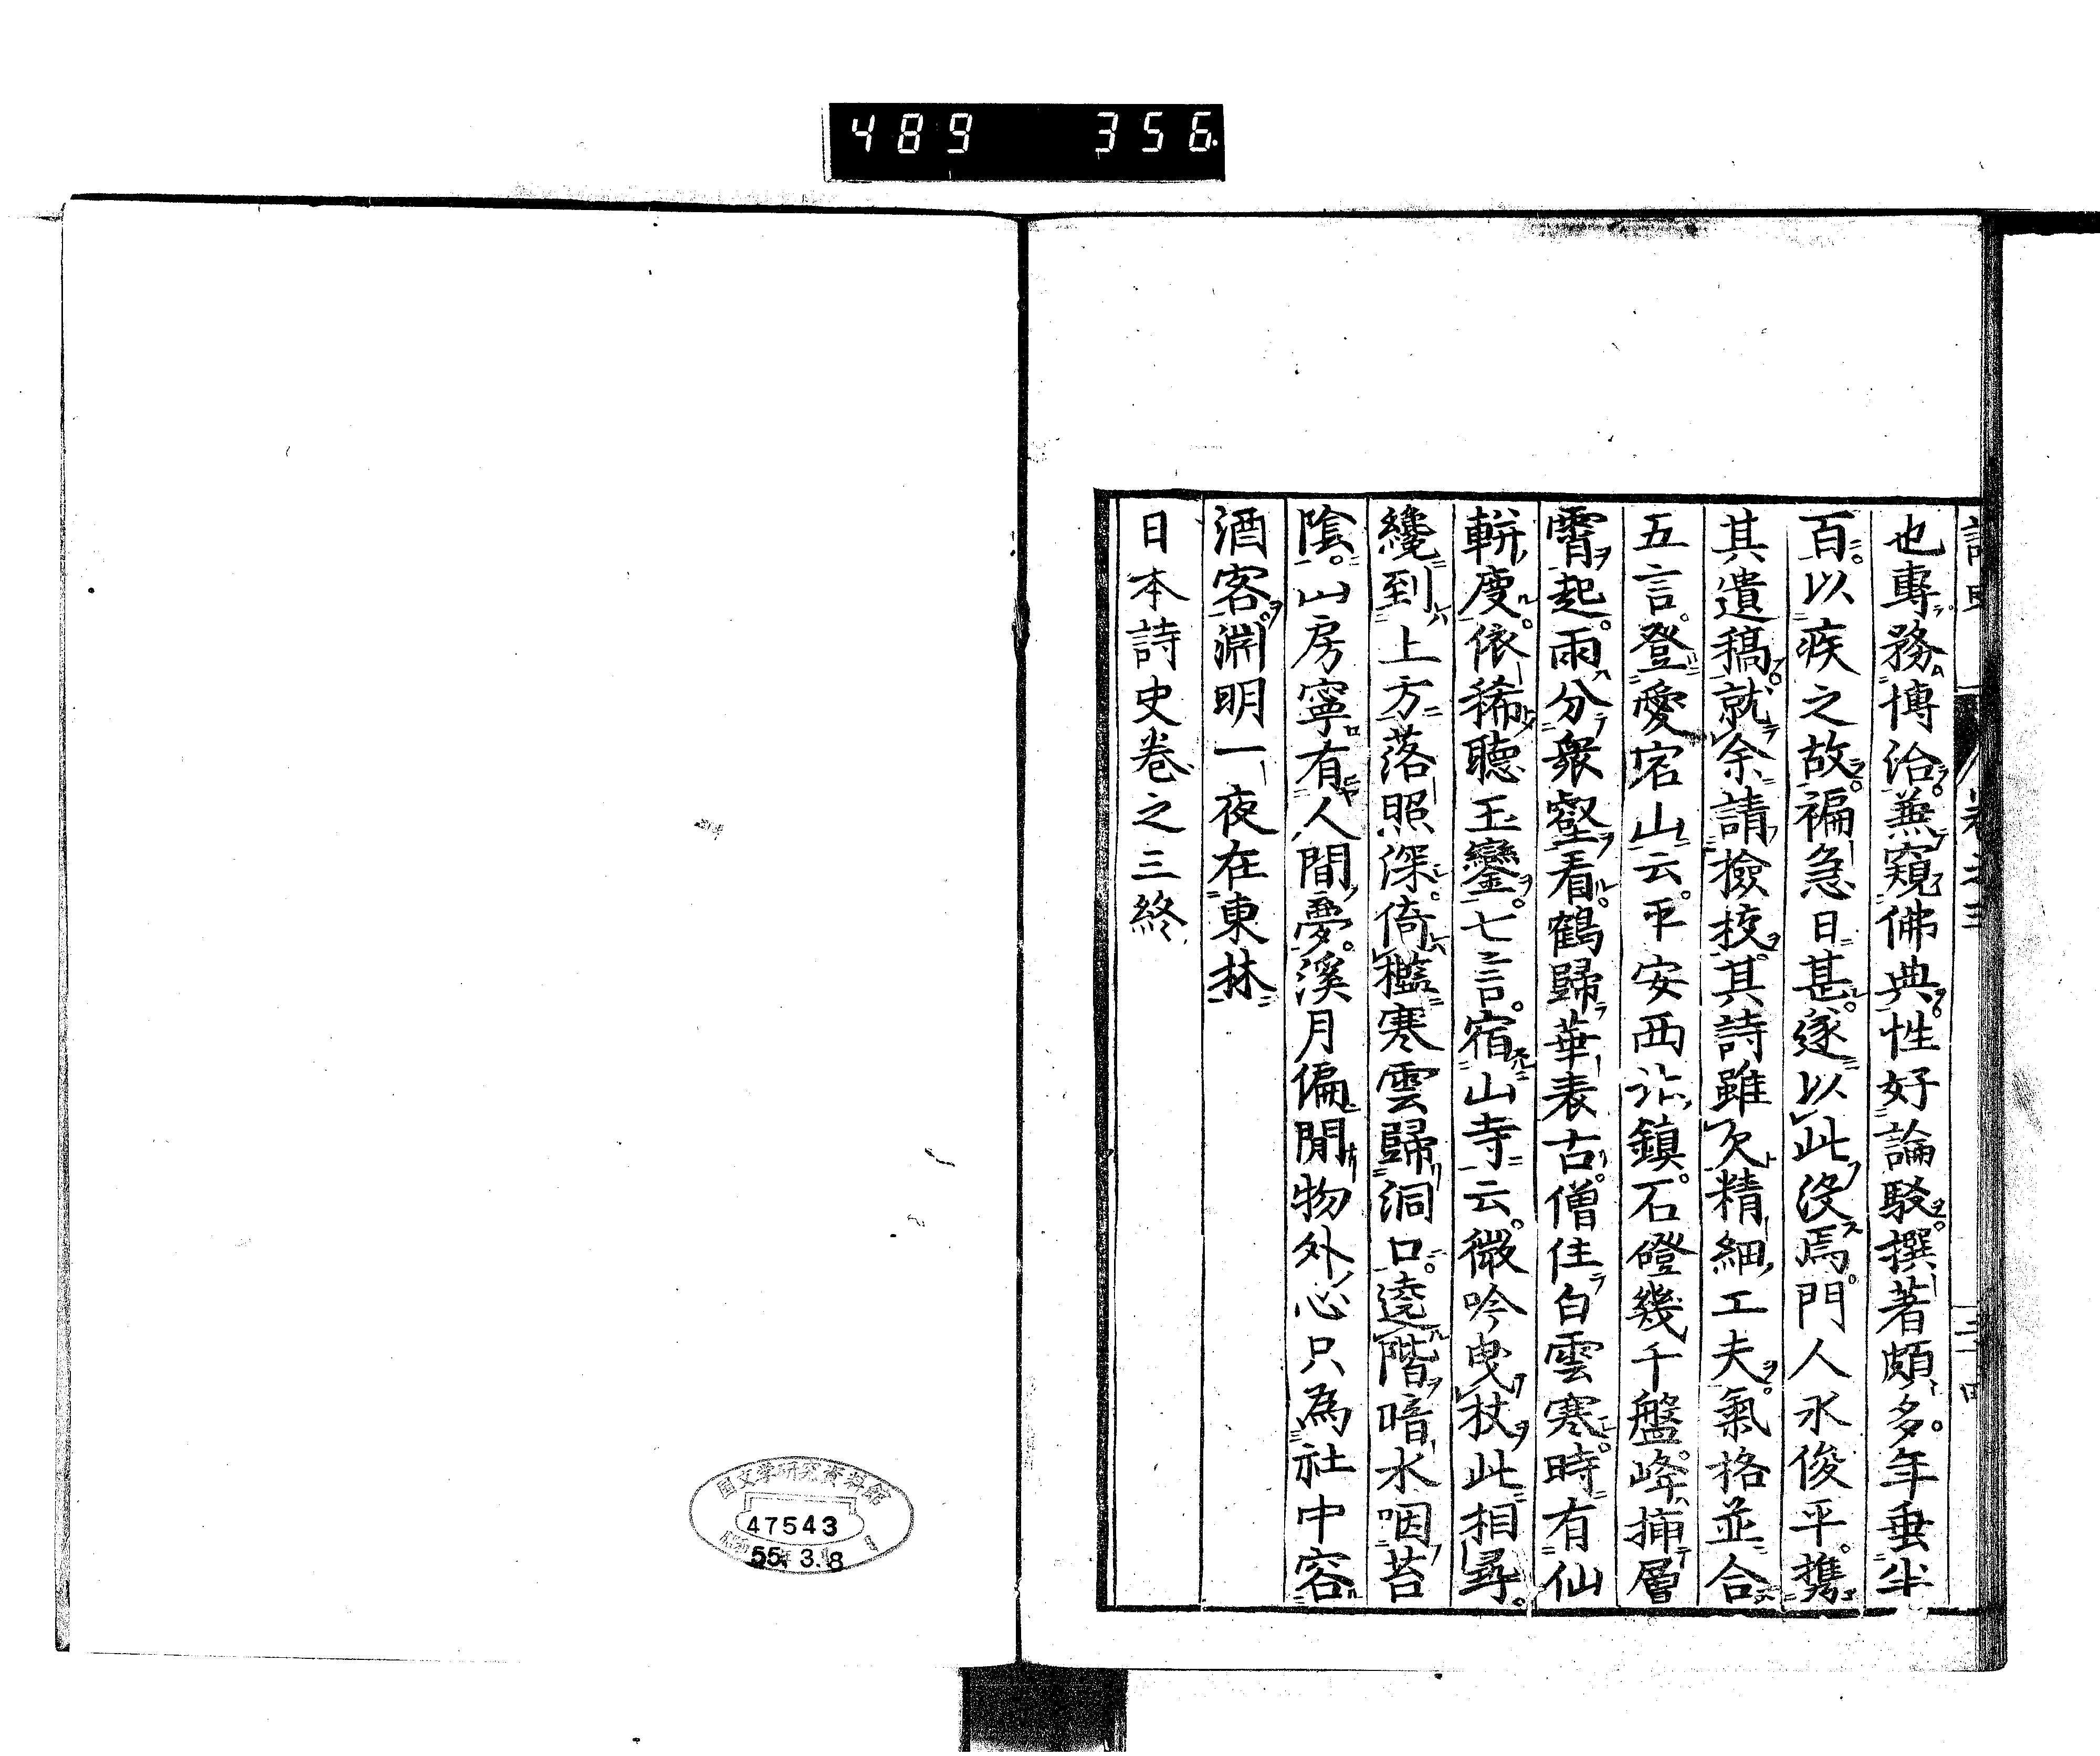 489 356
也專務博洽。兼窺佛典。性好論駁。撰著頗多。年垂半
百。以疾之故。褊急日甚。遂以此沒焉。門人永俊平。攜
其遺稿。就余請撿挍。其詩雖欠精細工夫。氣格並合
五言。登愛宕山云。平安西北鎮。石磴幾千盤。峰插層
霄起。雨分衆壑看。鶴歸華表古。僧住白雲寒。時有仙
輧度。依稀聽玉鑾。七言。宿山寺云。微吟曳杖此相尋。
纔到上方落照深。倚檻寒雲歸洞口。遶階暗水咽苔
陰。山房寧有人間夢。溪月偏閒物外心。只為社中容
酒客。淵明一夜在東林
日本詩史卷之三終
国文学研究資料館
47543
55.3.8